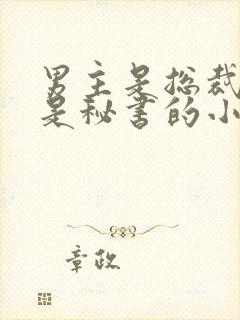 男主是总裁
是秘书的小
章政